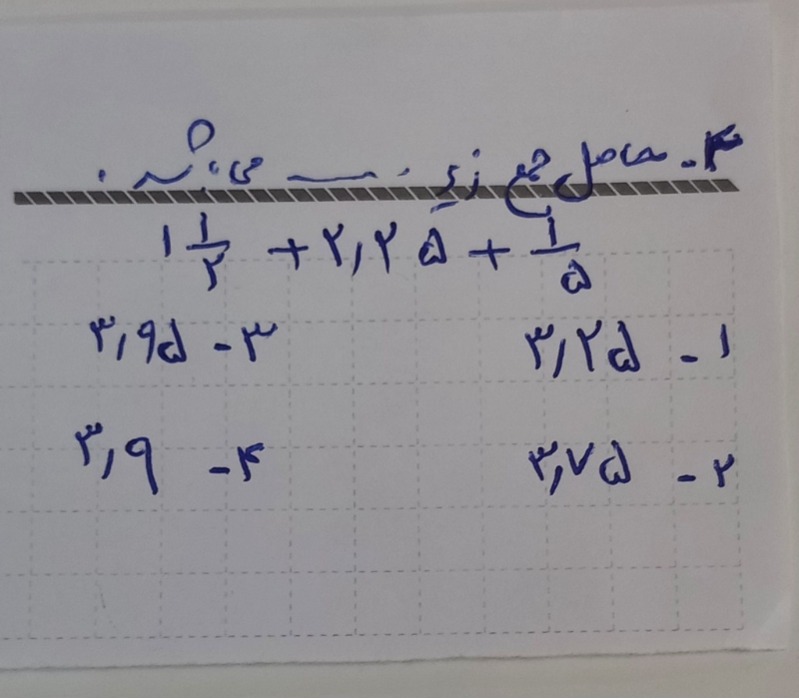 ۴- حاصل جمع زیر ... می باشد.
۱ ۱/۲ + ۲,۲۵ + ۱/۵
۱- ۳,۲۵ ۳- ۳,۹۵
۲- ۳,۷۵ ۴- ۳,۹